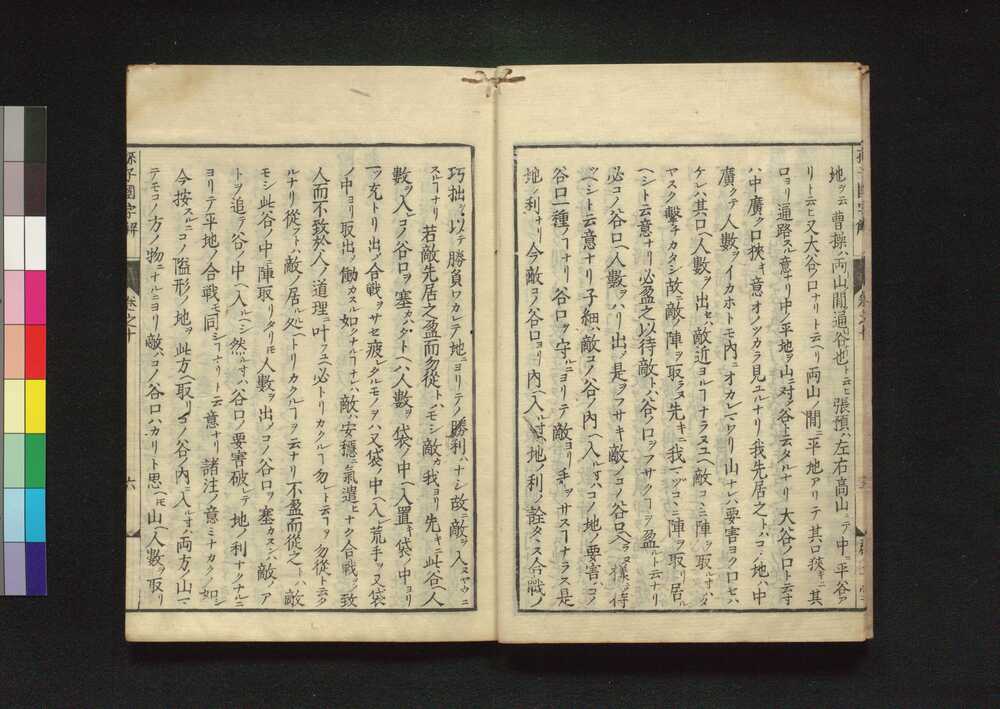 地ヲ云 曹操ハ両山間通谷也ト云ヒ 張預ハ左右高山ニテ中ニ平谷ア
リト云ヒ又大谷ノ口ナリト云ヘリ両山ノ間ニ平地アリテ其口狹キニ其
口ヨリ通路スル意ナリ中ノ平地ヲ山ニ対シ谷ト云タルナリ大谷ノ口ト云寸
ハ中廣ク口狹キ意オノツカラ見エルナリ我先居之トハコノ地ハ中
廣クテ人數ヲイカホトモ内ニオカレマワリ山ナレハ要害ヨク口セハ
ケレハ其口ヘ人數ヲ出セハ敵近ヨルヿナラヌユヘ敵コヽニ陣ヲ取寸ハ
ヤスク擊チカタシ故ニ敵ノ陣ヲ取ラヌ先キニ我コヽニ陣ヲ取リ居ル
ヘシト云意ナリ必盈之以待敵トハ谷ノ口ヲフサクヿヲ盈ルト云ナリ
必コノ谷口ヘ人數ヲハリ出シ是ヲフサキ敵ノコノ谷ヘ入ラヌ様ニシテ待
ツヘシト云意ナリ子細ハ敵コノ谷ノ内ヘ入ル寸ハコノ地ノ要害ハコノ
谷口一種ノヿナリ谷口ヲ守ルニヨリテ敵ヨリ手ヲサスヿナラス是
地ノ利ナリ今敵コノ谷口ヨリ内ヘ入ル寸ハ地ノ利ノ詮タヽス合戰ノ
巧拙ヲ以テ勝負ワカレテ地ニヨリテノ勝利ハナシ故ニ敵ヲ入ヌヤウニ
スルヿナリ 若敵先居之盈而勿從トハモシ敵カ我ヨリ先キニ此谷ヘ人
數ヲ入レコノ谷口ヲ塞カハタトヘハ人數ヲ袋ノ中ヘ入置キ袋ノ中ヨリ
ノ中ヨリ取出シ働カスル如クナルヿナレハ敵ハ安穩ニ氣遣ヒナク合戰ヲシ致
人而不致於人ノ道理ニ叶フユヘ必トリカクルヿ勿レト云ヿヲ勿從ト云タ
ルナリ從フトハ敵ノ居ル処ヘトリカクルヿヲ云ナリ不盈而從之トハ敵
モシ此谷ノ中ニ陣取リタリ𪜈人數ヲ出シコノ谷口ヲ塞カスンハ敵ノア
トヲ追テ谷ノ中ヘ入ルヘシ然ル寸ハ谷口ノ要害破レテ地ノ利ナクナルニ
ヨリテ平地ノ合戰モ同シヿナリト云意ナリ 諸注ノ意ミナカクノ如シ
今按スルニコノ隘形ノ地ヲ此方ヘ取リコノ谷ノ内ニ入ル寸ハ両方ノ山ニ
テモコノ方ノ物ニナルニヨリ敵ハコノ谷口ハカリト思ヘ𪜈山ヘ人數ヲ取リ
孫子國字解
卷之十
六